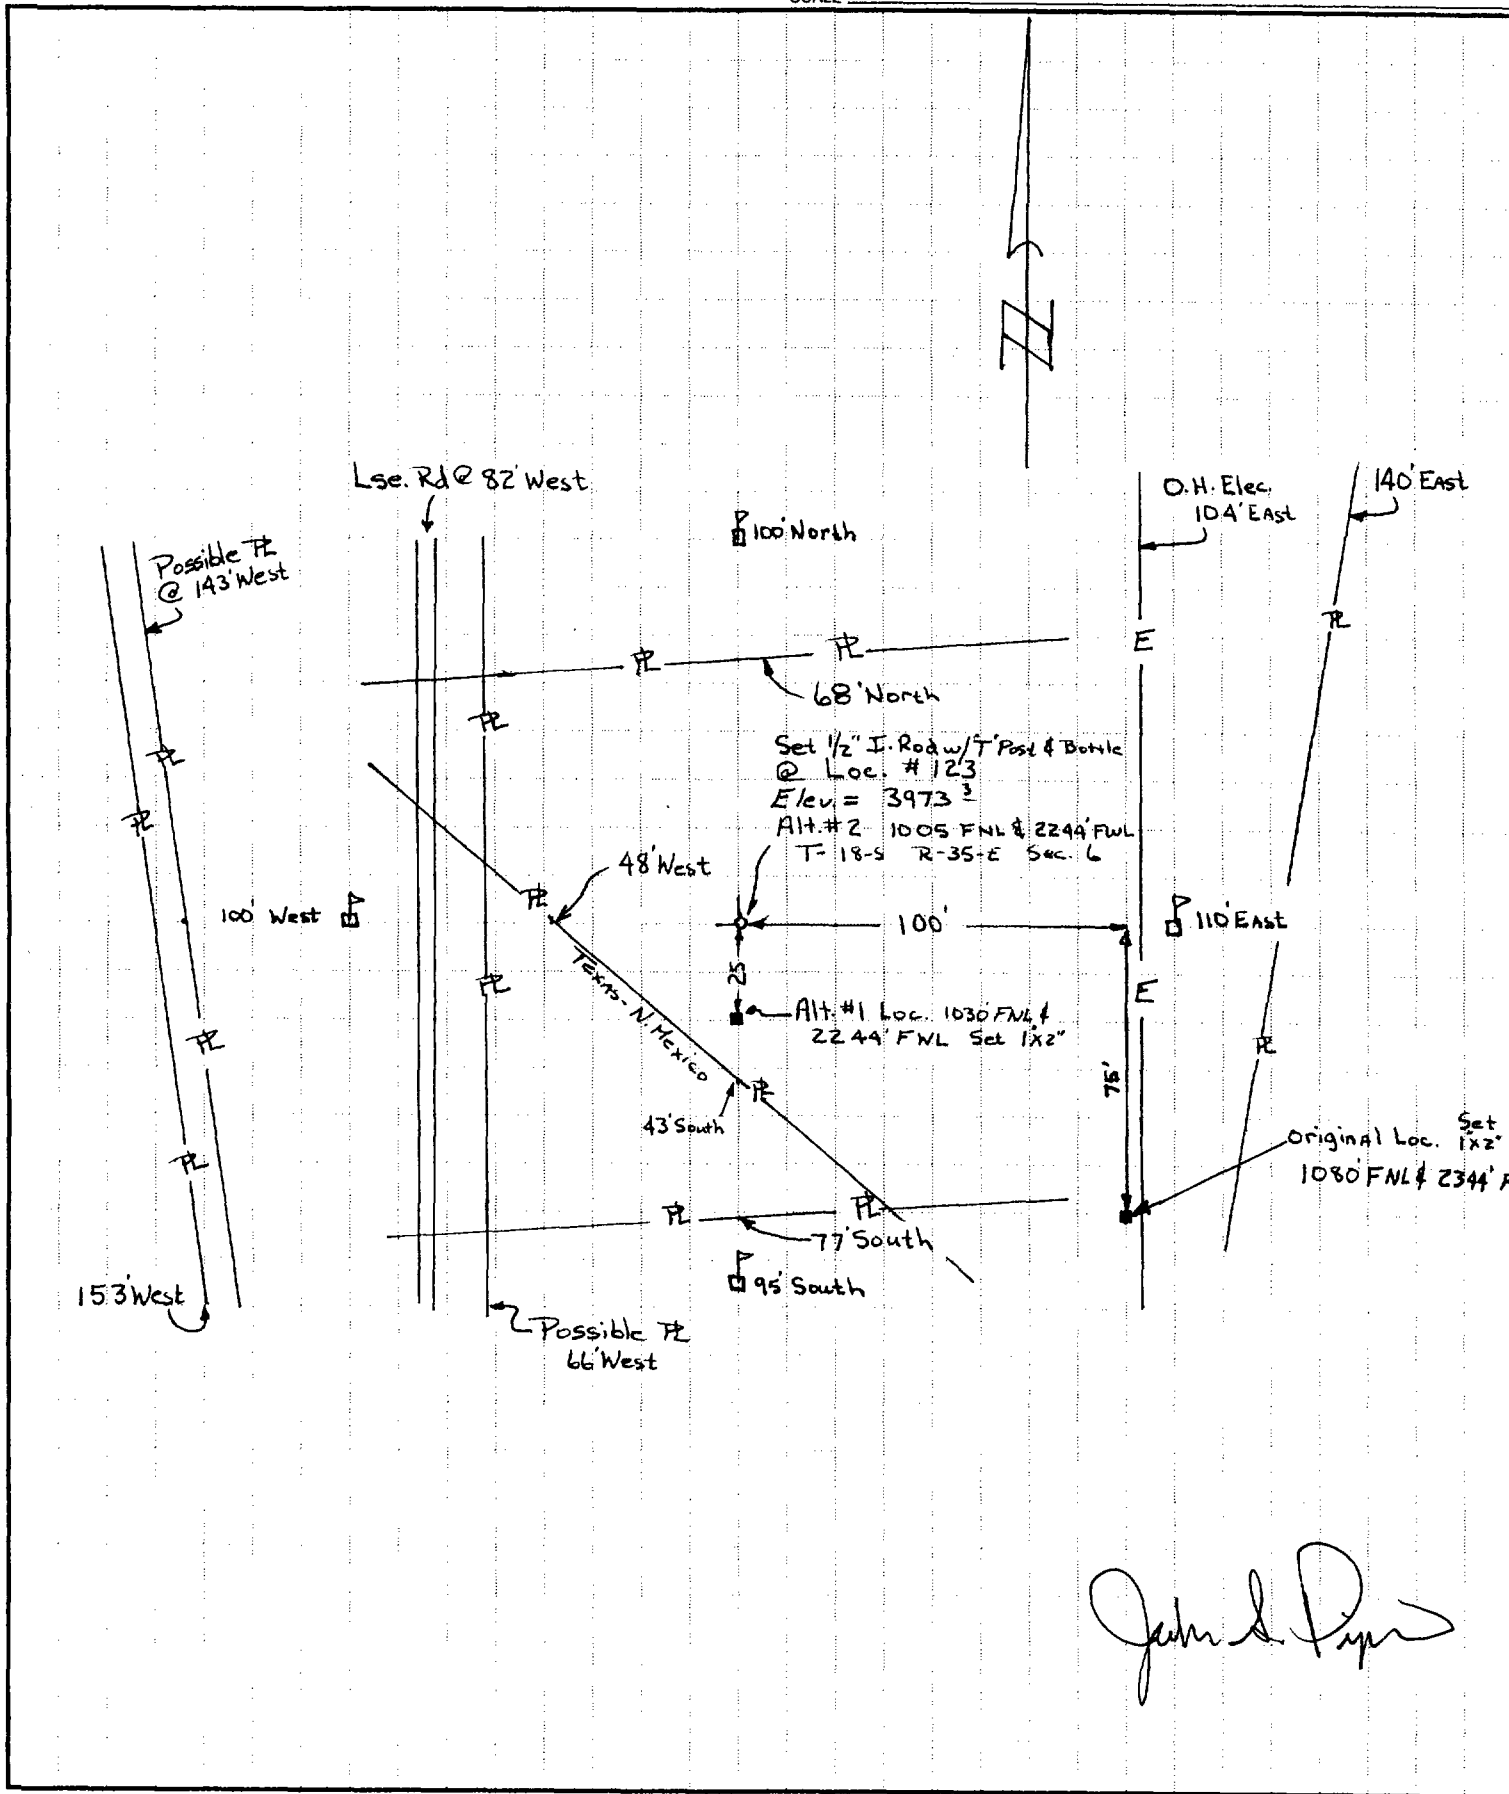 Lse. Rd @ 82' West
O.H. Elec.
104' East
140' East
100' North
Possible PL
@ 143' West
E
PL
PL
PL
68' North
PL
PL
PL
Set 1/2" I. Rod w/ T' Post & Bottle
@ Loc. # 123
Elev. = 3973 3
Alt. #2 1005 FNL & 2244' FWL
T-18-S R-35-E Sec. 6
48' West
PL
100' West
100'
110' East
25
PL
E
Texas - N. Mexico
Alt. #1 Loc. 1030' FNL &
2244' FWL Set 1"x2"
PL
PL
75'
PL
43' South
Original Loc. Set
1"x2"
1080' FNL & 2344' F
PL
PL
PL
77' South
95' South
153' West
Possible PL
66' West